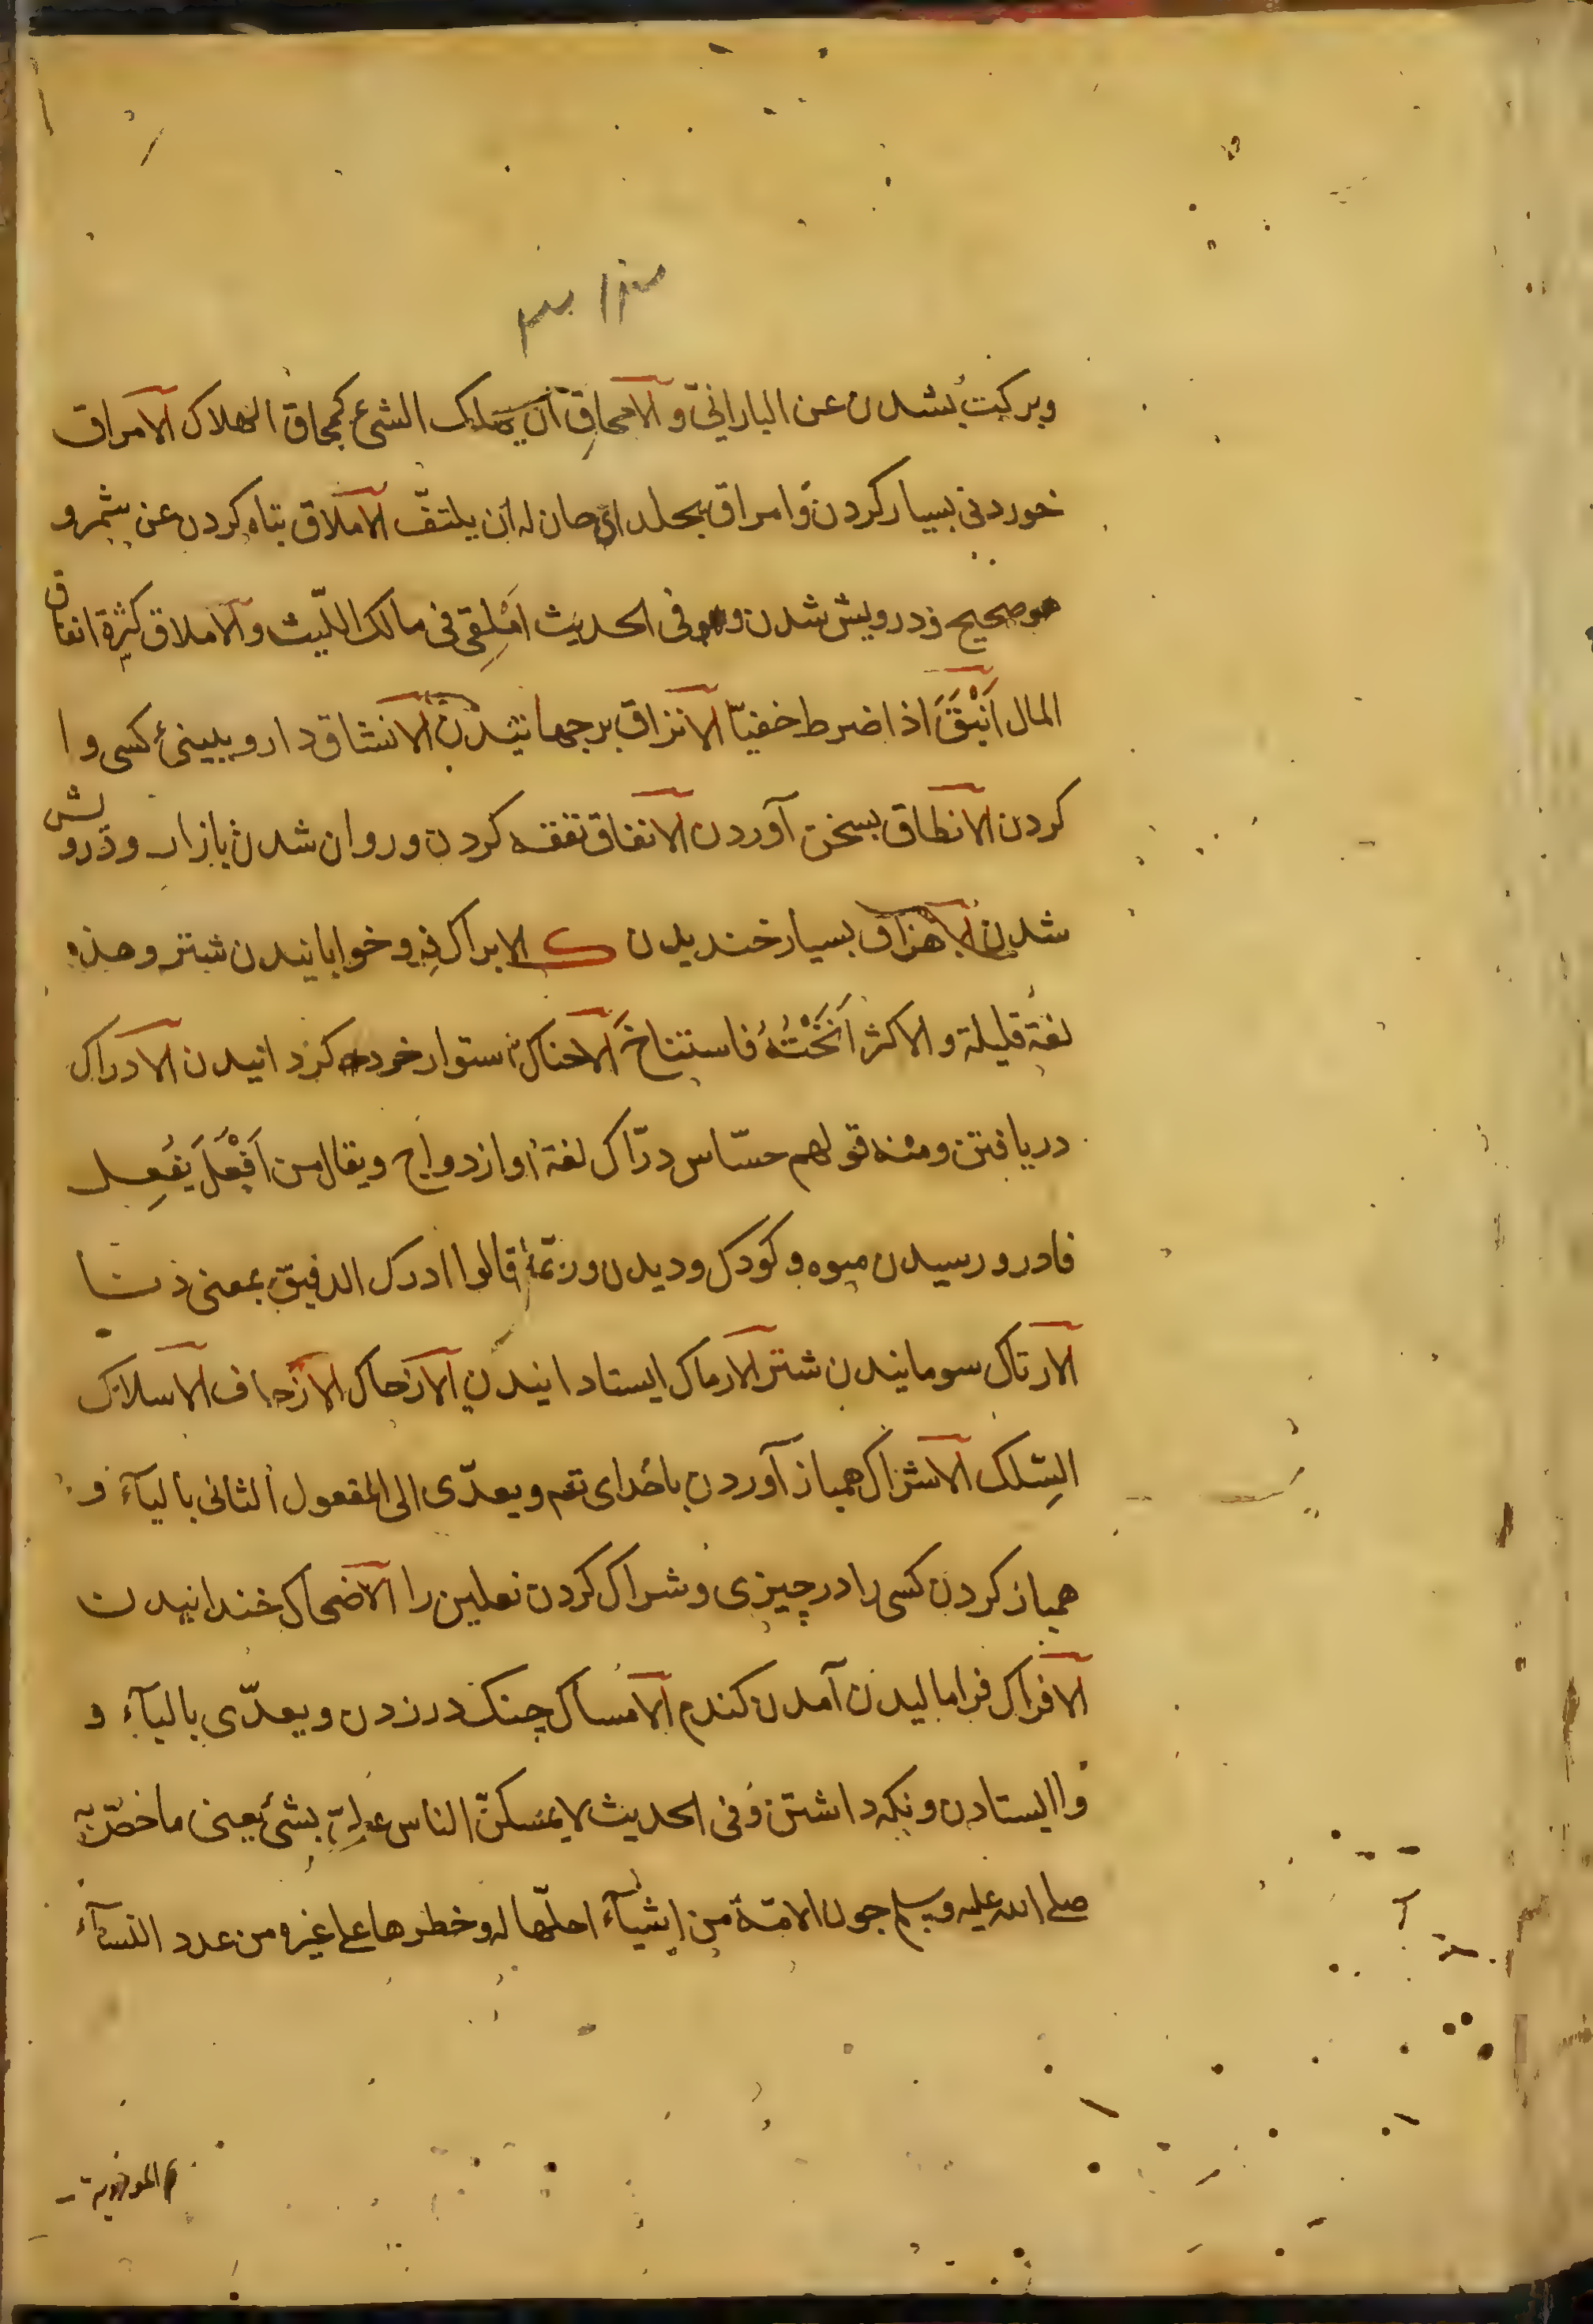 وبرکت بشدن عن البارانیّ و الامحاق ان یهلک الشیء کمحاق الهلاک الامراق
خوردنی بسیار کردن وامراق بجلد ای حان له ان یلتفّ الاملاق تباه کردن عن شمر و
هو صحیح ودرویش شدن وفی الحدیث اَمْلِقی فی مالک اللّیث والاملاق کثرة انفاق
المال اَنْبَقَ اذا ضرط خفیّا الانزاق برجهانیدن الانشاق دارو ببینیٔ کسی وا
کردن الانطاق بسخن آوردن الانفاق نفقه کردن وروان شدن بازار ودرویش
شدن الاهزاق بسیار خندیدن ک الابراک فروخوابانیدن شتر وهذه
لغة قلیلة والاکثر اَنَخْتُهُ فاستناخ الاحناک استوار خرد کردانیدن الادراک
دریافتن ومنه قولهم حسّاس درّاک لغة او ازدواج ویقال من اَفْعَلَ یَفُعِل
فادرو رسیدن میوه وکودک ودیدن وربّما قالوا ادرک الدقیق بمعنی
الارتاک سومانیدن شتر الارماک ایستادانیدن الازحاک الازحاف الاسلاک
السِّلک الاشراک همباز آوردن باخدای تعم ویعدّی الی المفعول الثانی بالیآء و
همباز کردن کسی را در چیزی وشراک کردن نعلین را الاضحاک خندانیدن
الافراک فرامالیدن آمدن کندم الامساک چنک درزدن ویعدّی بالبآء و
واایستادن ونکه داشتن وفی الحدیث لا یمسکنّ الناس علیّ بشیٔ یعنی ما خصّ به
صلی الله علیه وسلم دون الامّة من اشیآء احلّها له وخطرها علی غیره من عدد النسآء